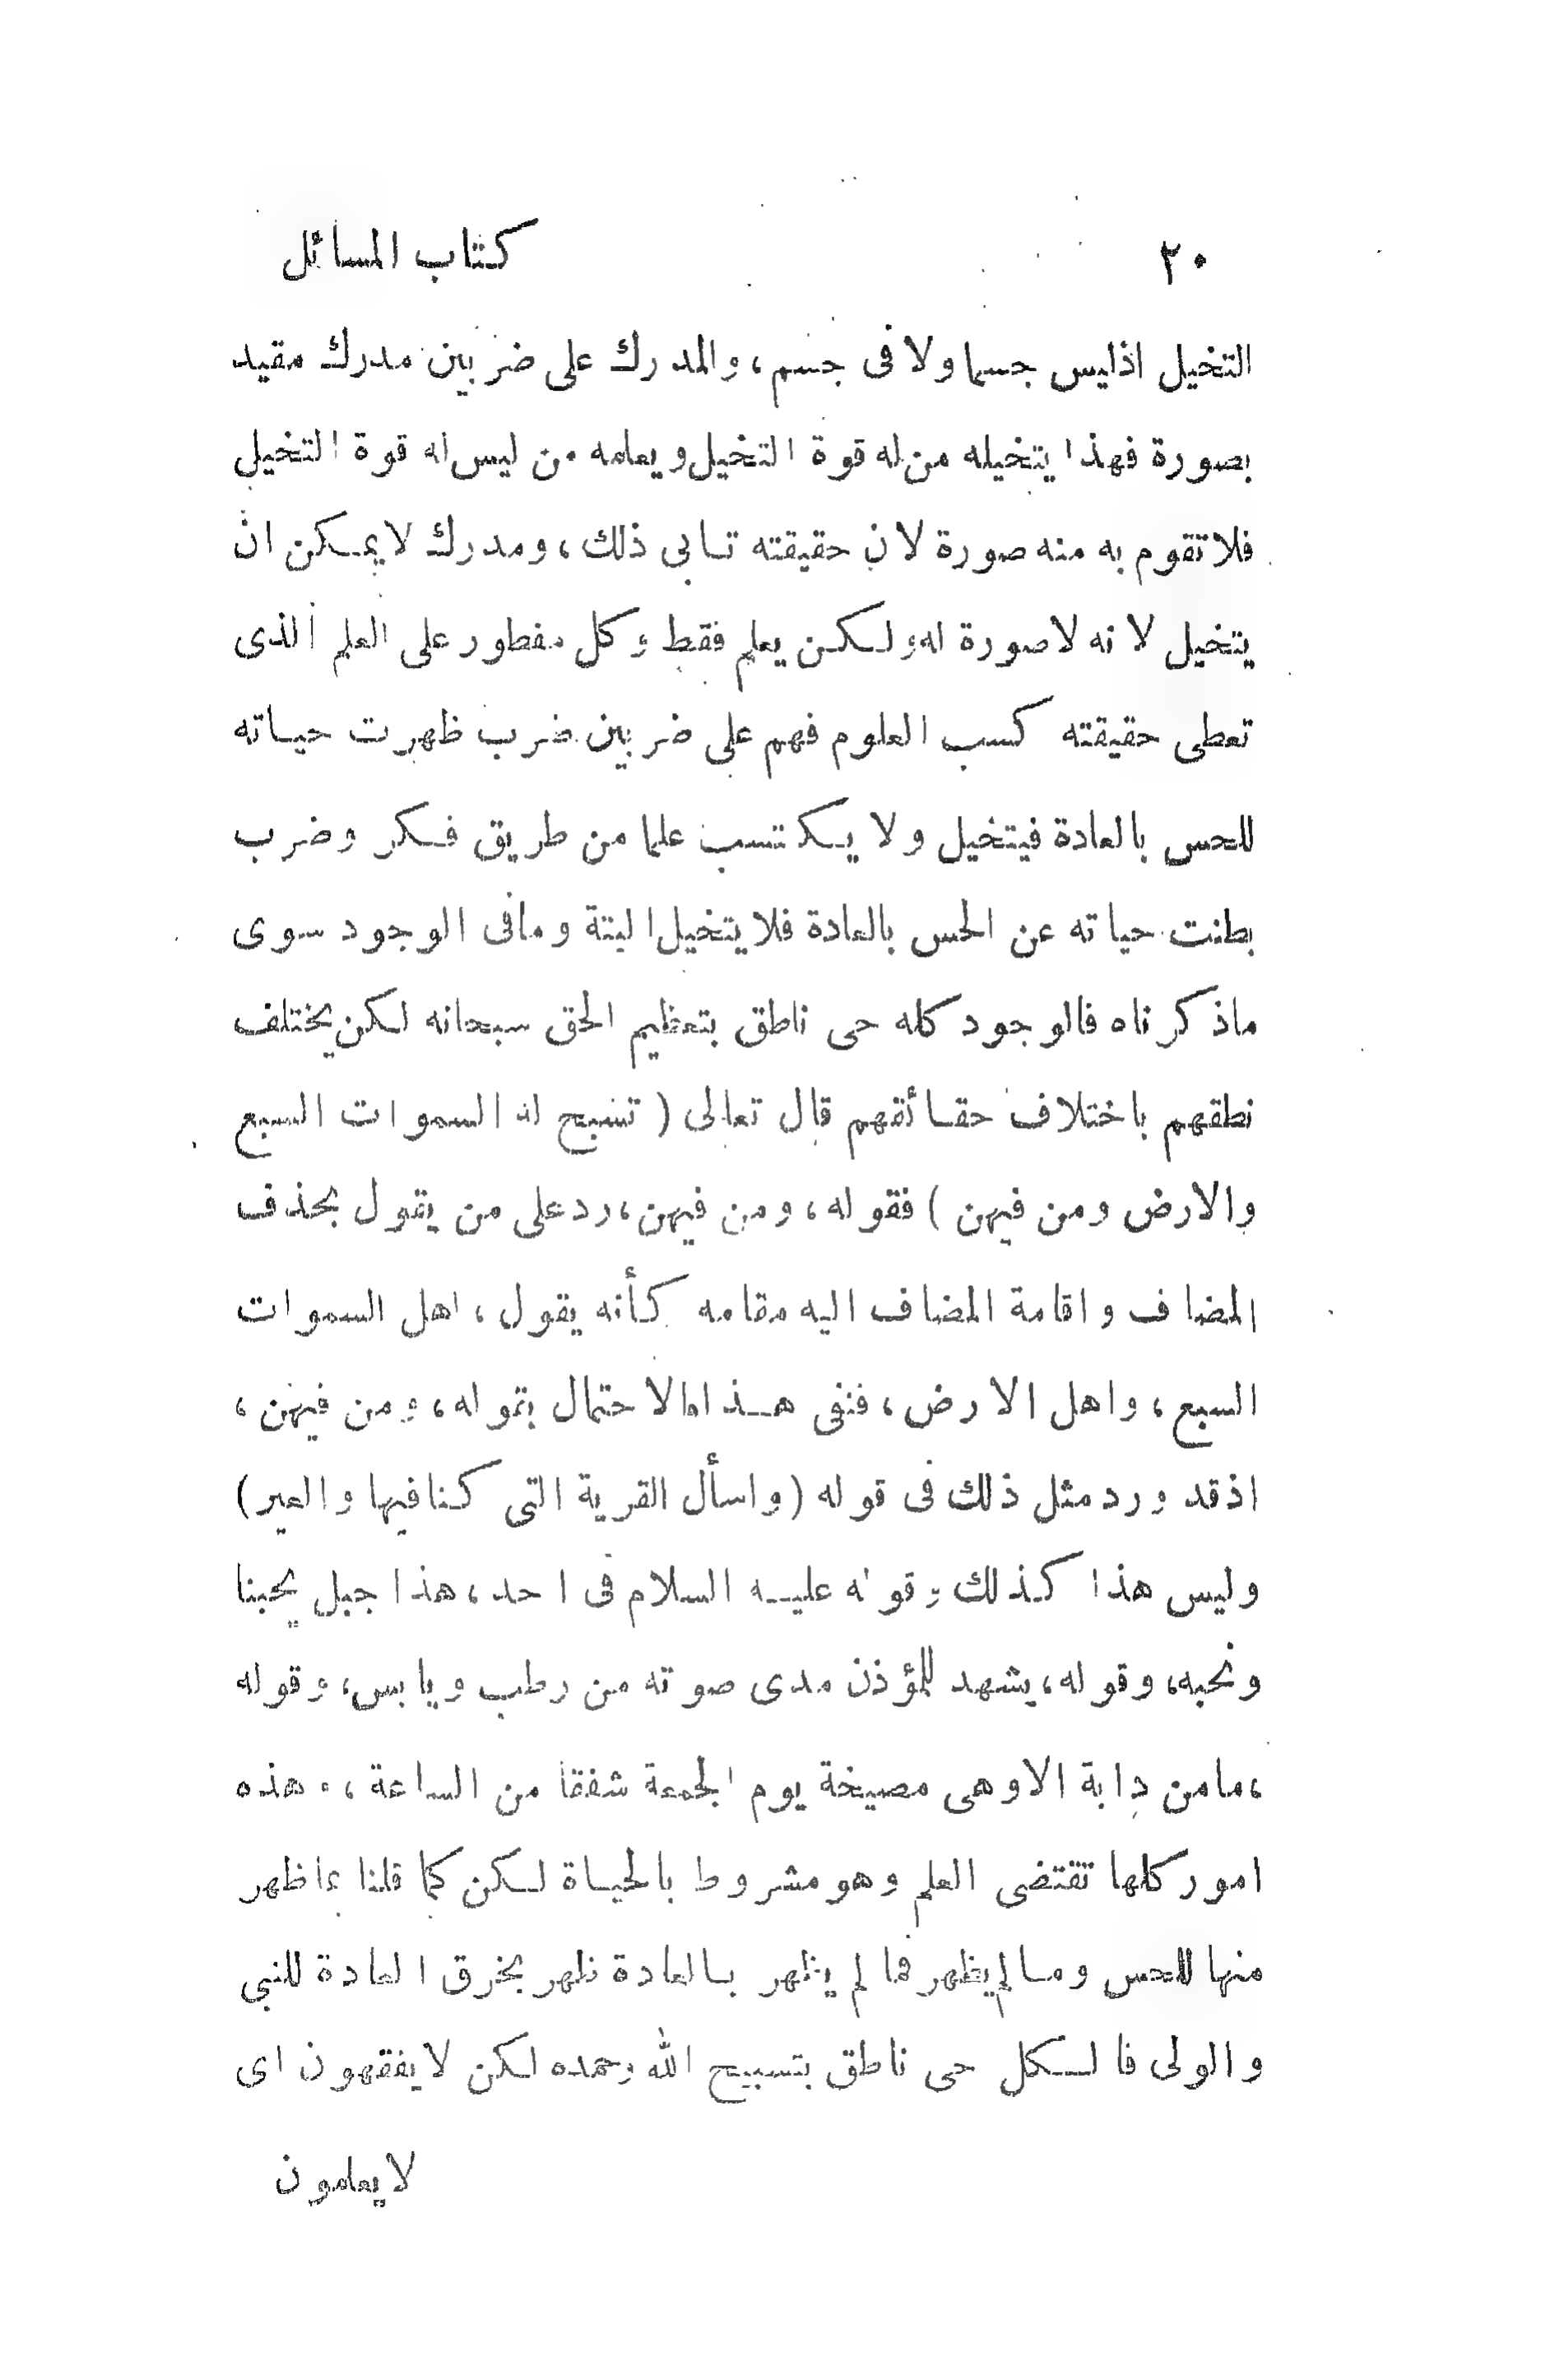 ٢٠ كتاب المسائل
التخيل اذليس جسما ولا فى جسم، والمدرك على ضربين مدرك مقيد
بصورة فهذا يتخيله من له قوة التخيل ويعلمه من ليس له قوة التخيل
فلا تقوم به منه صورة لان حقيقته تابى ذلك، ومدرك لا يمكن ان
يتخيل لانه لاصورة له ولكن يعلم فقط وكل مفطور على العلم الذى
تعطى حقيقته كسب العلوم فهم على ضربين ضرب ظهرت حياته
للحس بالعادة فيتخيل ولا يكتسب علما من طريق فكر وضرب
بطنت حياته عن الحس بالعادة فلا يتخيل البتة ومافى الوجود سوى
ماذكرناه فالوجود كله حى ناطق بتعظيم الحق سبحانه لكن يختلف
نطقهم باختلاف حقائقهم قال تعالى ( تسبح له السموات السبع
والارض ومن فيهن ) فقوله، ومن فيهن، رد على من يقول بحذف
المضاف واقامة المضاف اليه مقامه كأنه يقول، اهل السموات
السبع، واهل الارض، فنفى هذا الاحتمال بقوله، ومن فيهن،
اذقد ورد مثل ذلك فى قوله (واسأل القرية التى كنا فيها والعير)
وليس هذا كذلك وقوله عليه السلام فى احد، هذا جبل يحبنا
ونحبه، وقوله، يشهد للمؤذن مدى صوته من رطب ويابس، وقوله
،مامن دابة الاوهى مصيخة يوم الجمعة شفقا من الساعة، وهذه
امور كلها تقتضى العلم وهو مشروط بالحياة لكن كما قلنا ماظهر
منها للحس ومالم يظهر فما لم يظهر بالعادة ظهر بخرق العادة للنبى
والولى فالكل حى ناطق بتسبيح الله وحمده لكن لا يفقهون اى
لايعلمون